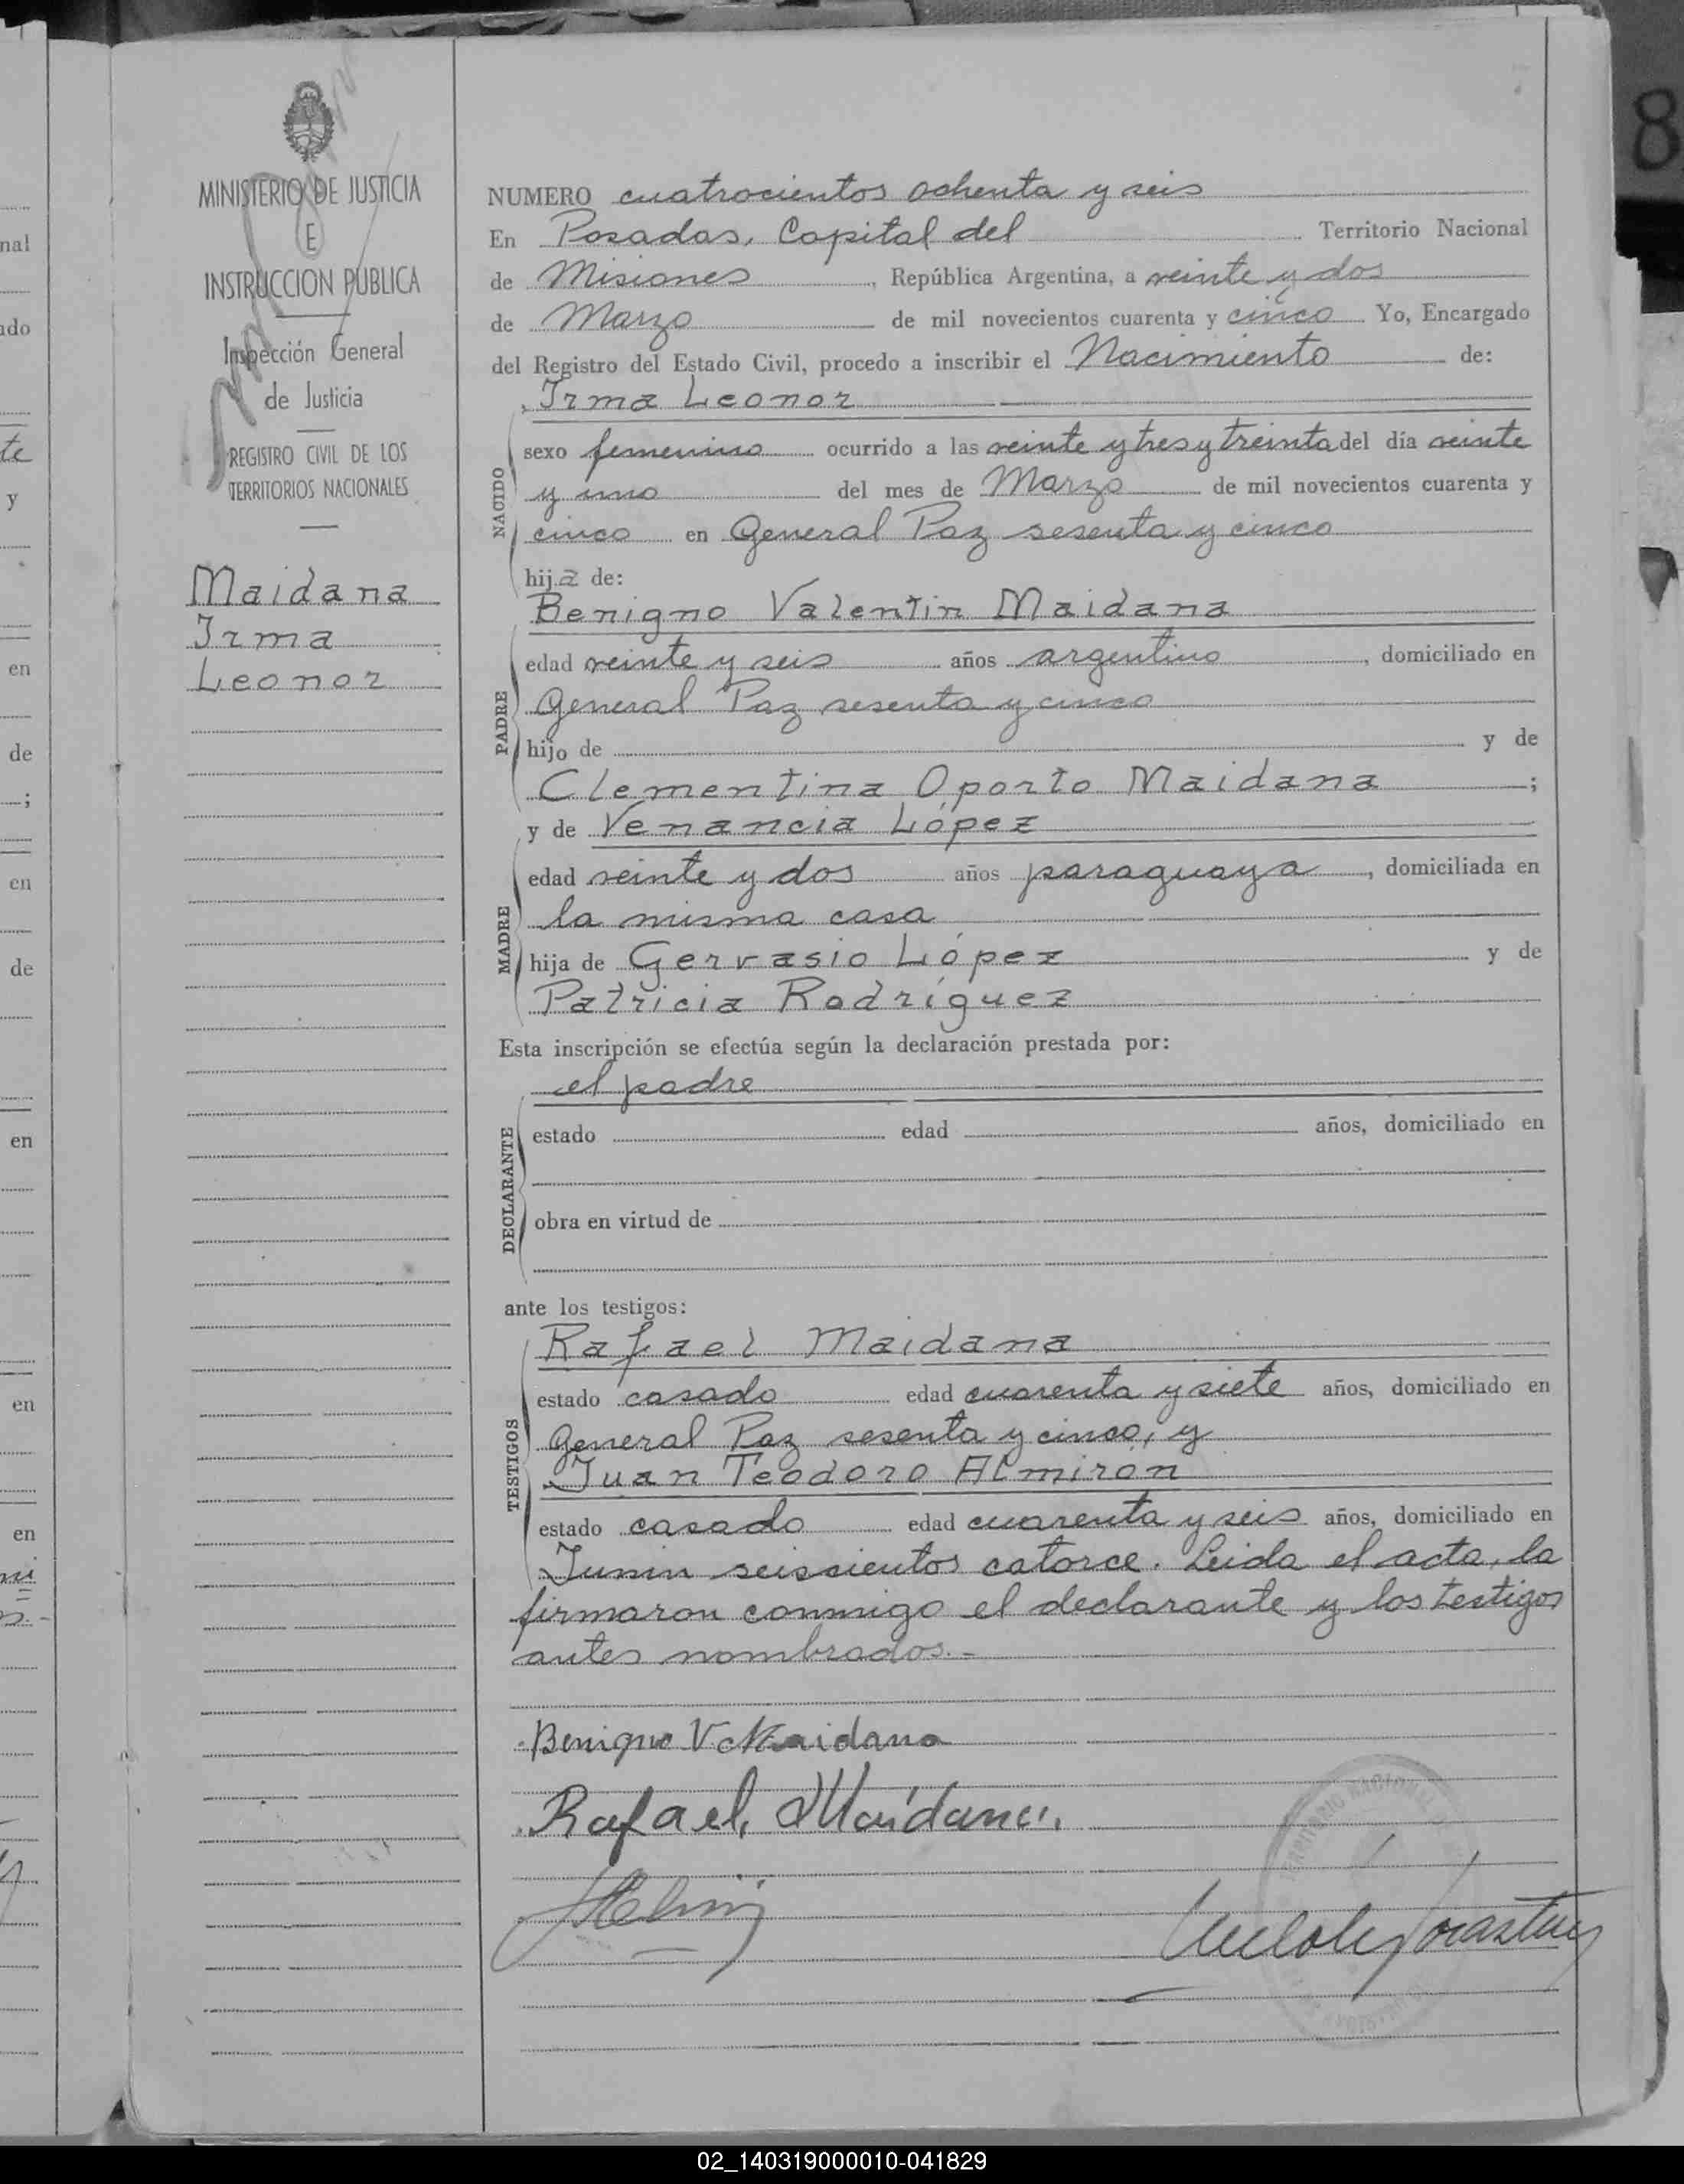 MINISTERIO DE JUSTICIA
E
INSTRUCCION PUBLICA
Inspección General
de Justicia
REGISTRO CIVIL DE LOS
TERRITORIOS NACIONALES
Maidana
Irma
Leonor
NUMERO cuatrocientos ochenta y seis
En Posadas, Capital del Territorio Nacional
de Misiones, República Argentina, a veinte y dos
de Marzo de mil novecientos cuarenta y cinco Yo, Encargado
del Registro del Estado Civil, procedo a inscribir el Nacimiento de:
Irma Leonor
NACIDO
sexo femenino ocurrido a las veinte y tres y treinta del día veinte
y uno del mes de Marzo de mil novecientos cuarenta y
cinco en General Paz sesenta y cinco
hija de:
Benigno Valentin Maidana
PADRE
edad veinte y seis años argentino, domiciliado en
General Paz sesenta y cinco
hijo de y de
Clementina Oporto Maidana;
y de Venancia López
MADRE
edad veinte y dos años paraguaya, domiciliada en
la misma casa
hija de Gervasio López y de
Patricia Rodríguez
Esta inscripción se efectúa según la declaración prestada por:
el padre
DECLARANTE
estado edad años, domiciliado en
obra en virtud de
ante los testigos:
Rafael Maidana
TESTIGOS
estado casado edad cuarenta y siete años, domiciliado en
General Paz sesenta y cinco, y
Juan Teodoro Almiron
estado casado edad cuarenta y seis años, domiciliado en
Junin seiscientos catorce. Leida el acta, la
firmaron conmigo el declarante y los testigos
antes nombrados.-
Benigno V Maidana
Rafael Maidana
02_140319000010-041829